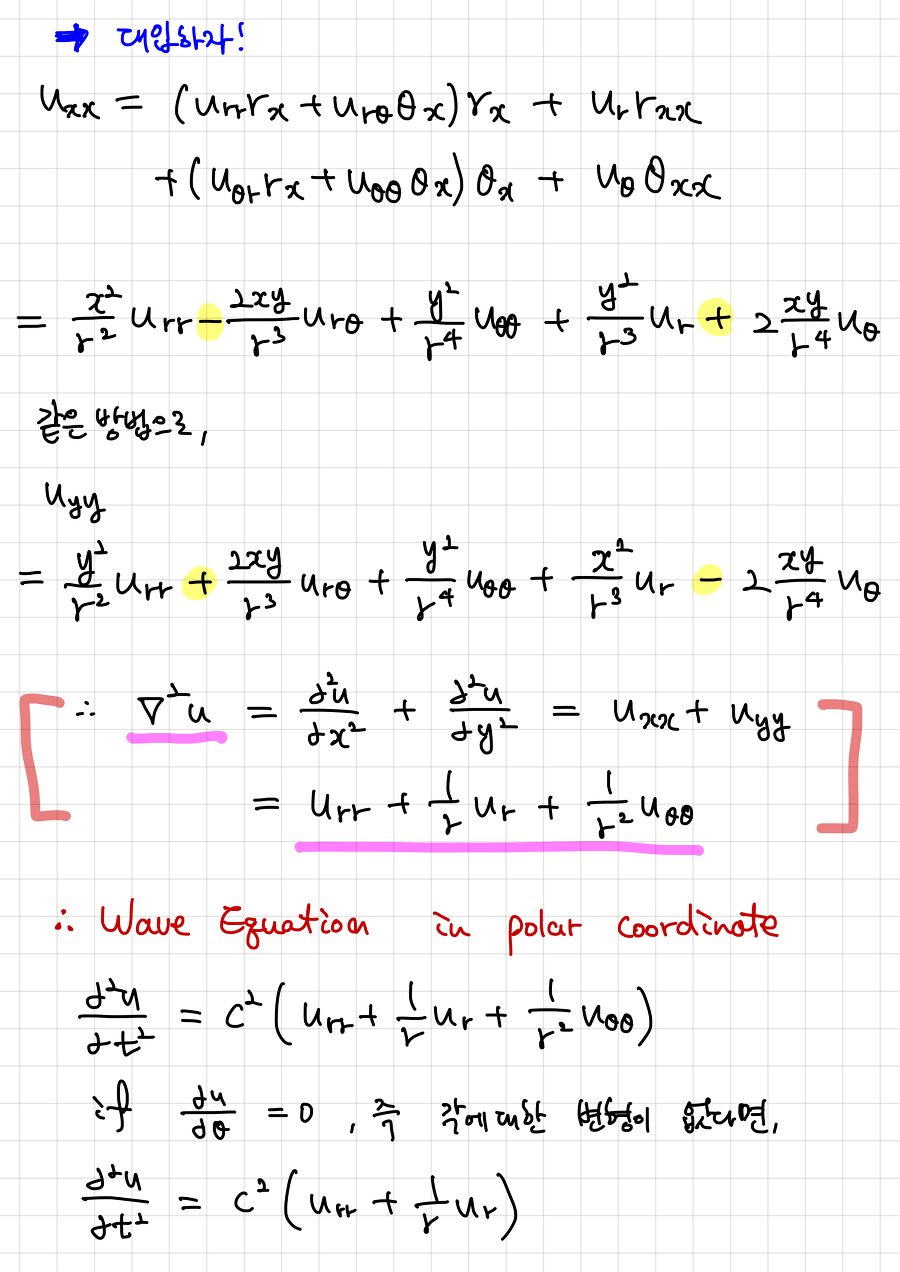 ➡ 대입하자!
u_xx = (u_rr r_x + u_rθ θ_x) r_x + u_r r_xx
+ (u_θr r_x + u_θθ θ_x) θ_x + u_θ θ_xx
= x²/r² u_rr - 2xy/r³ u_rθ + y²/r⁴ u_θθ + y²/r³ u_r + 2 xy/r⁴ u_θ
같은 방법으로,
u_yy
= y²/r² u_rr + 2xy/r³ u_rθ + y²/r⁴ u_θθ + x²/r³ u_r - 2 xy/r⁴ u_θ
∴ ∇²u = ∂²u/∂x² + ∂²u/∂y² = u_xx + u_yy
= u_rr + 1/r u_r + 1/r² u_θθ
∴ Wave Equation in polar coordinate
∂²u/∂t² = c² (u_rr + 1/r u_r + 1/r² u_θθ)
if ∂u/∂θ = 0, 즉 각에 대한 변형이 없다면,
∂²u/∂t² = c² (u_rr + 1/r u_r)